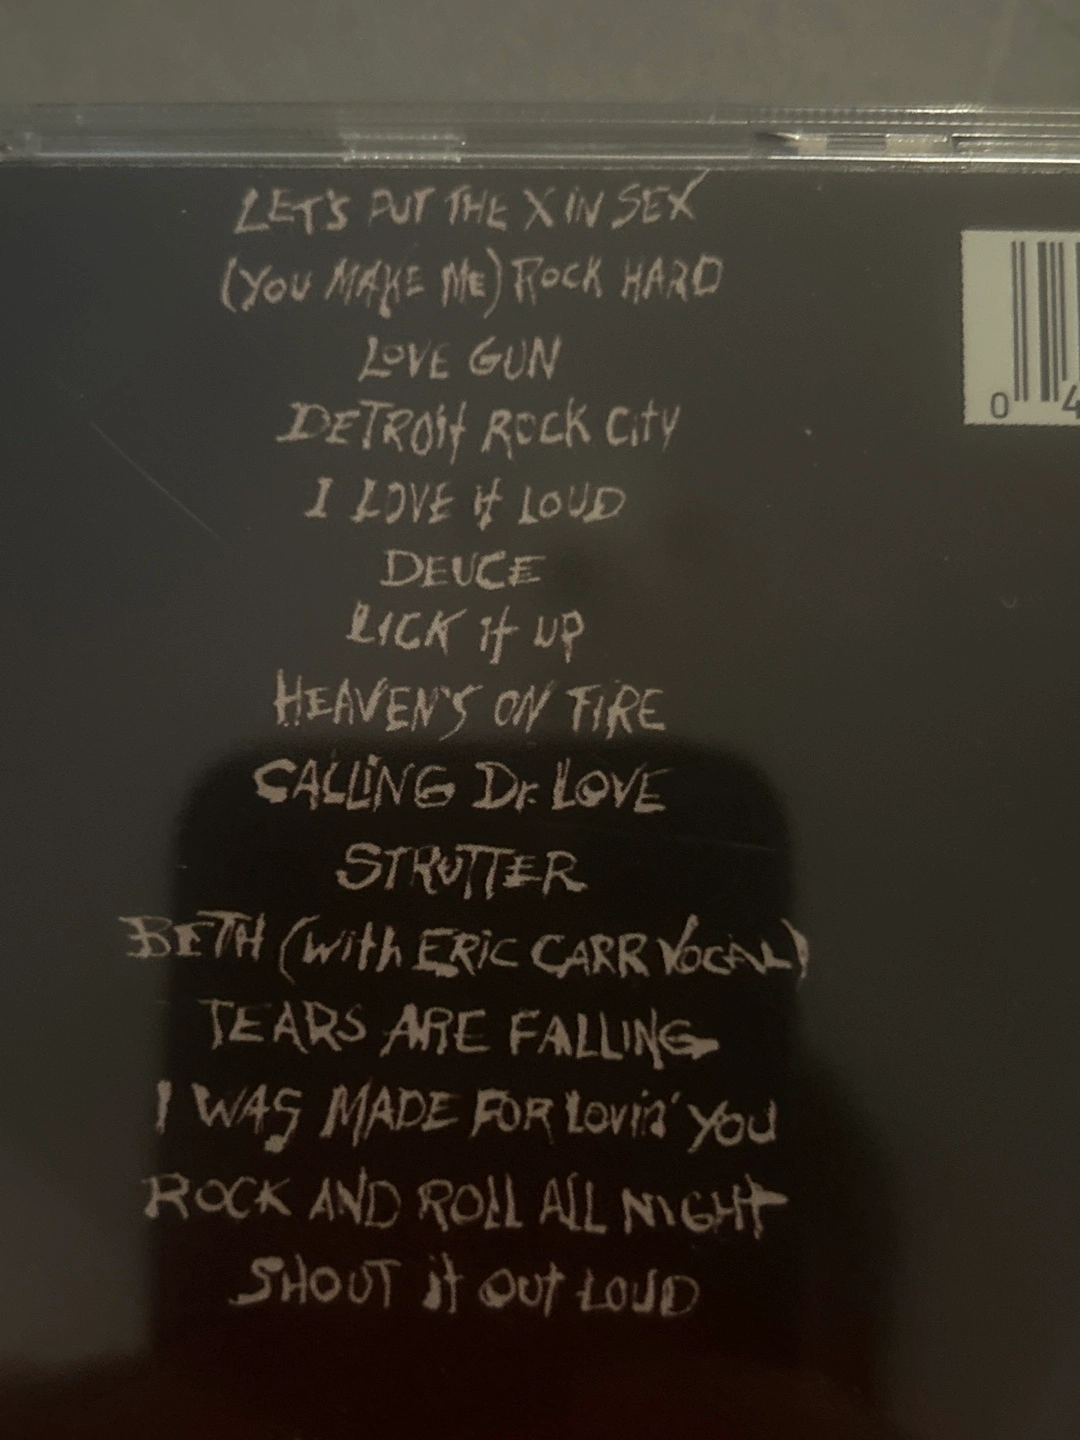 LET'S PUT THE X IN SEX
(YOU MAKE ME) ROCK HARD
LOVE GUN
DETROIT ROCK CITY
I LOVE IT LOUD
DEUCE
LICK IT UP
HEAVEN'S ON FIRE
CALLING DR. LOVE
STRUTTER
BETH (WITH ERIC CARR VOCAL)
TEARS ARE FALLING
I WAS MADE FOR LOVIN' YOU
ROCK AND ROLL ALL NIGHT
SHOUT IT OUT LOUD
0 4